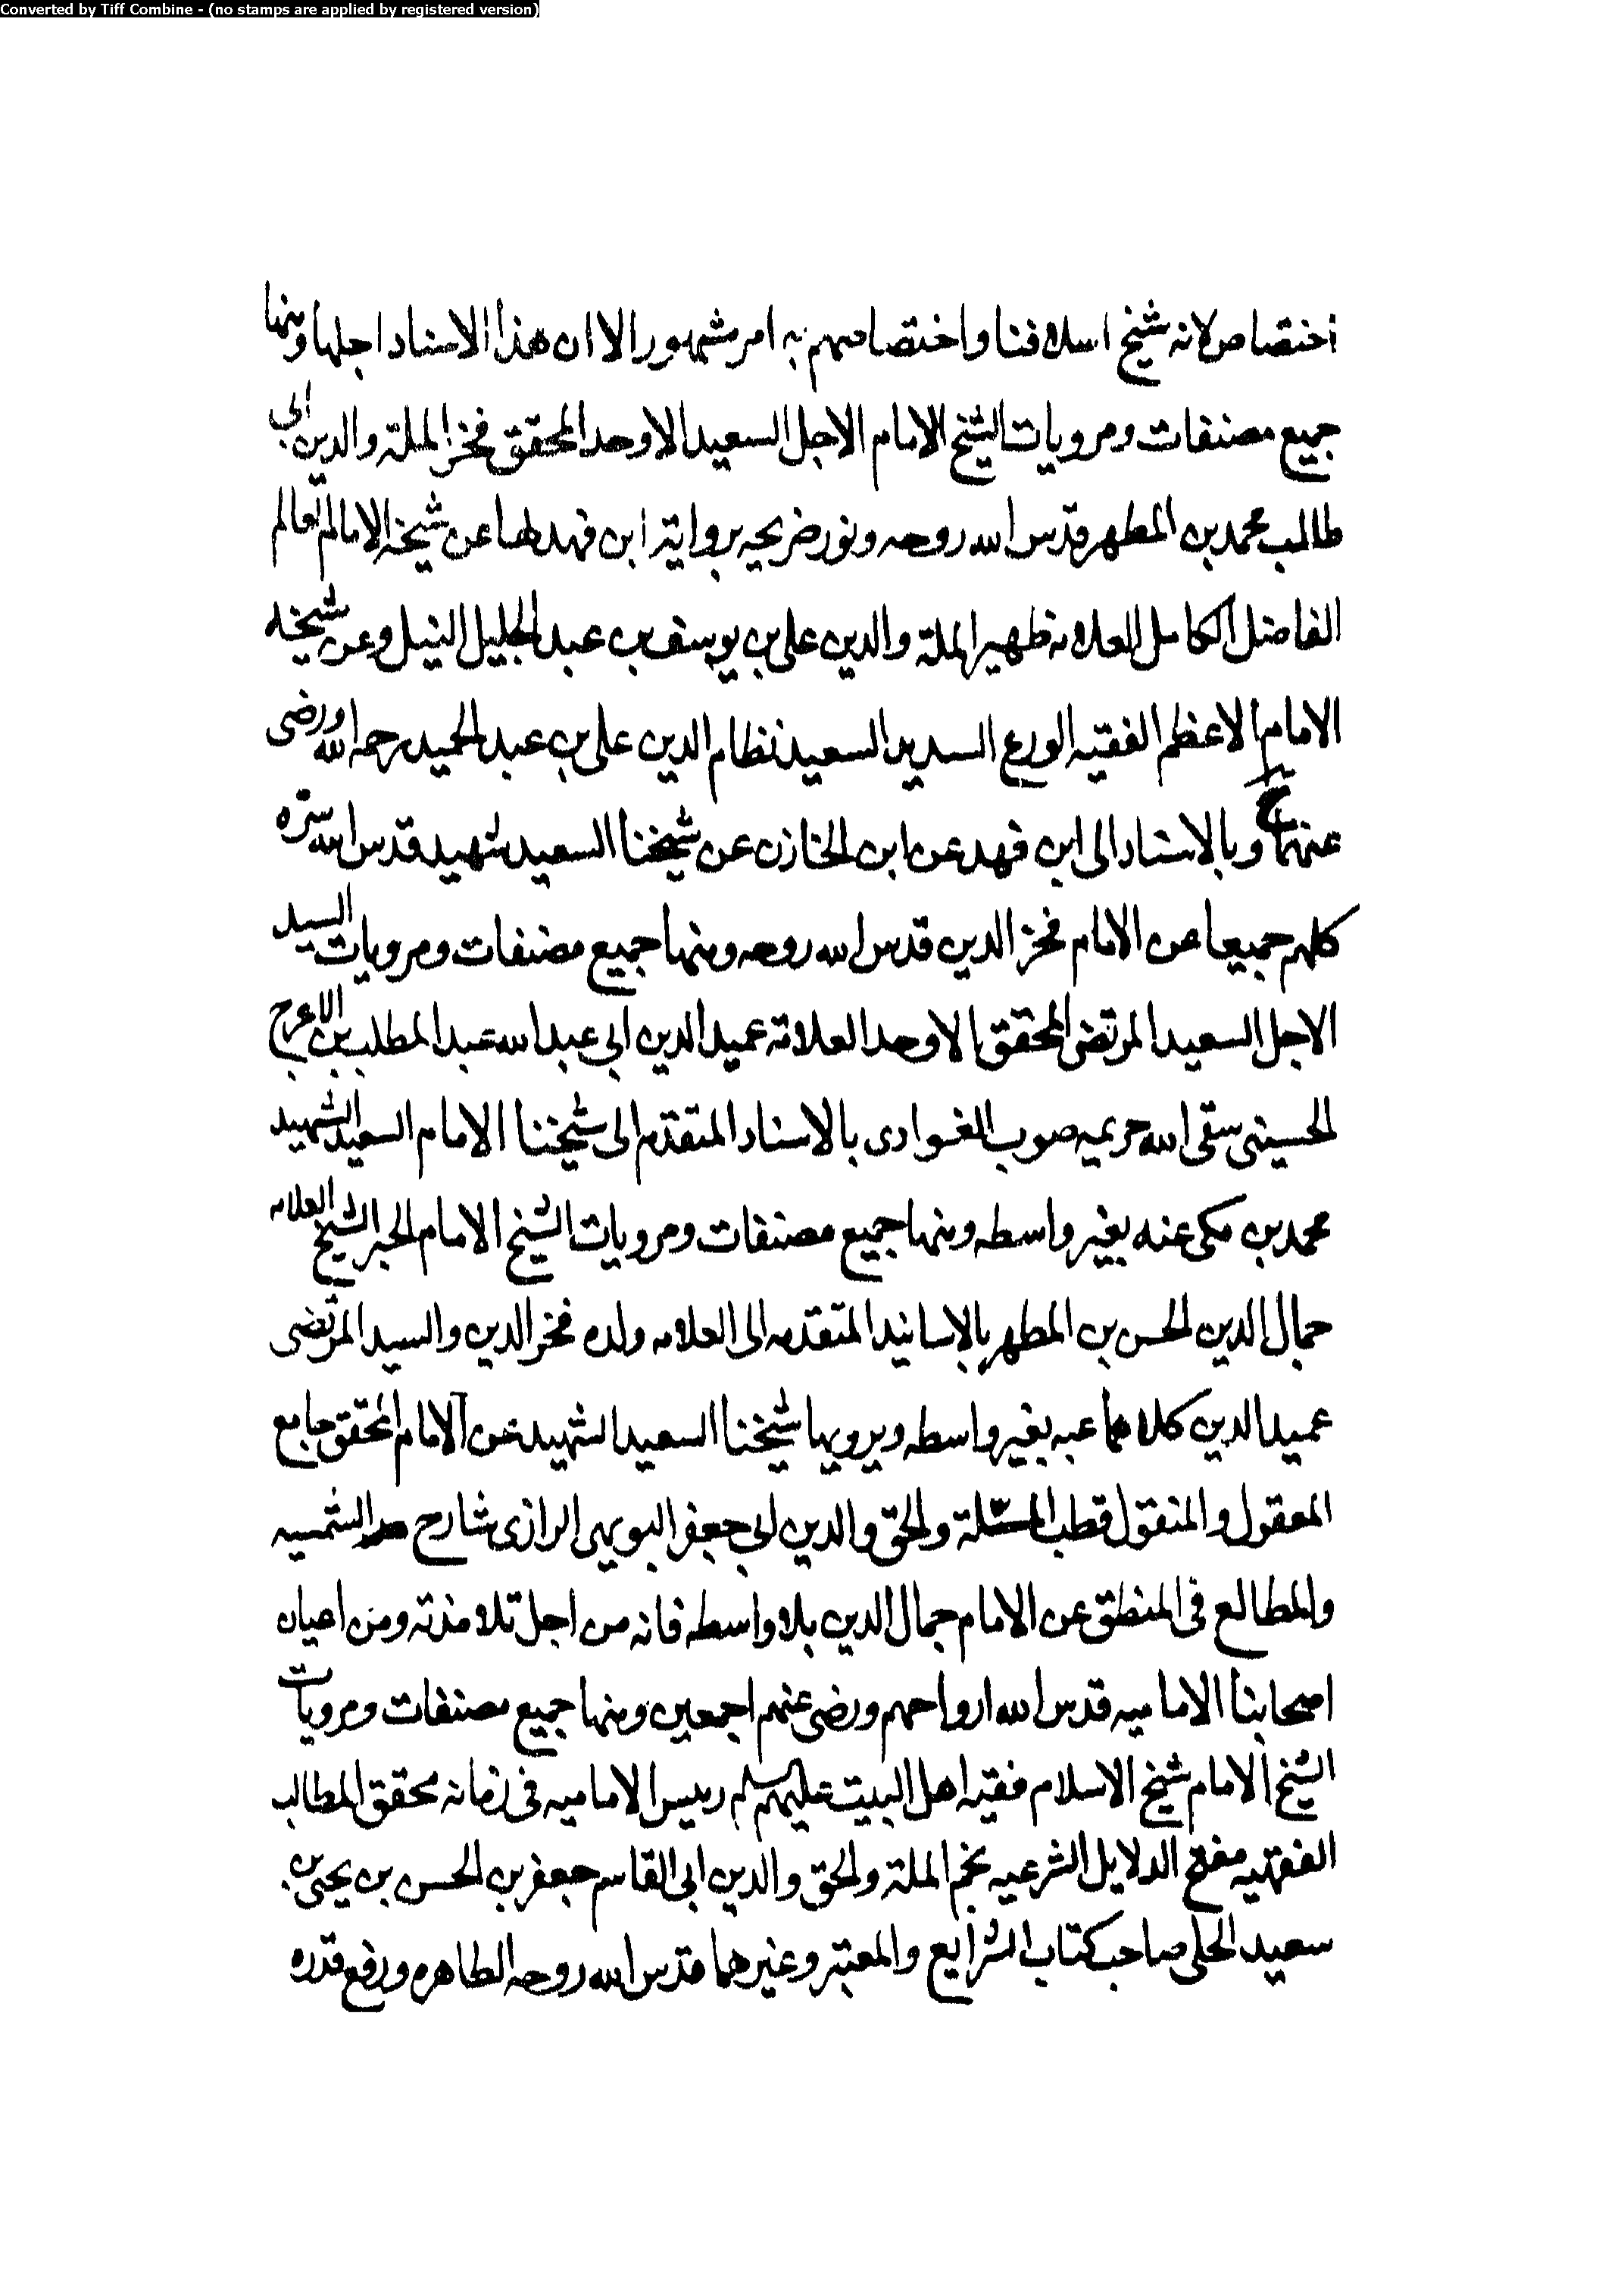 Converted by Tiff Combine - (no stamps are applied by registered version)
اختصاص لانه شيخ اسلافنا واختصاصهم به امر مشهور الا ان هذا الاسناد اجلها ومنها
جميع مصنفات ومرويات الشيخ الامام الاجل السعيد الاوحد المحقق فخر الملة والدين ابي
طالب محمد بن المطهر قدس الله روحه ونور ضريحه برواية ابن فهد لها عن شيخه الامام العالم
الفاضل الكامل العلامه ظهير الملة والدين على بن يوسف بن عبد الجليل النيلى وعن شيخه
الامام الاعظم الفقيه الورع السديد السعيد نظام الدين على بن عبد الحميد رحمه الله ورضى
عنهما وبالاسناد الى ابن فهد عن ابن الخازن عن شيخنا السعيد شهيد قدس الله سره
كلهم جميعا عن الامام فخر الدين قدس الله روحه ومنها جميع مصنفات ومرويات السيد
الاجل السعيد المرتضى المحقق الاوحد العلامة عميد الدين ابى عبد الله عبد المطلب بن الاعرج
الحسينى سقى الله حريمه صوب الغوادى بالاسناد المتقدم الى شيخنا الامام السعيد الشهيد
محمد بن مكى عنه بغير واسطه ومنها جميع مصنفات ومرويات الشيخ الامام الحبر الشيخ العلامه
جمال الدين الحسن بن المطهر بالاسانيد المتقدمه الى العلامه ولده فخر الدين والسيد المرتضى
عميد الدين كلاهما عنه بغير واسطه ويرويها شيخنا السعيد الشهيد عن الامام المحقق جامع
المعقول والمنقول قطب الملة والحق والدين ابى جعفر البويهى الرازى شارح الشمسيه
والمطالع فى المنطق عن الامام جمال الدين بلا واسطه فانه من اجل تلامذته ومن اعيان
اصحابنا الاماميه قدس الله ارواحهم ورضى عنهم اجمعين ومنها جميع مصنفات ومرويات
الشيخ الامام شيخ الاسلام فقيه اهل البيت عليهم السلم رييس الاماميه فى زمانه محقق المطالب
الفقهيه منقح الدلايل الشرعيه نجم الملة والحق والدين ابى القاسم جعفر بن الحسن بن يحيى بن
سعيد الحلى صاحب كتاب الشرايع والمعتبر وغيرهما قدس الله روحه الطاهره ورفع قدره